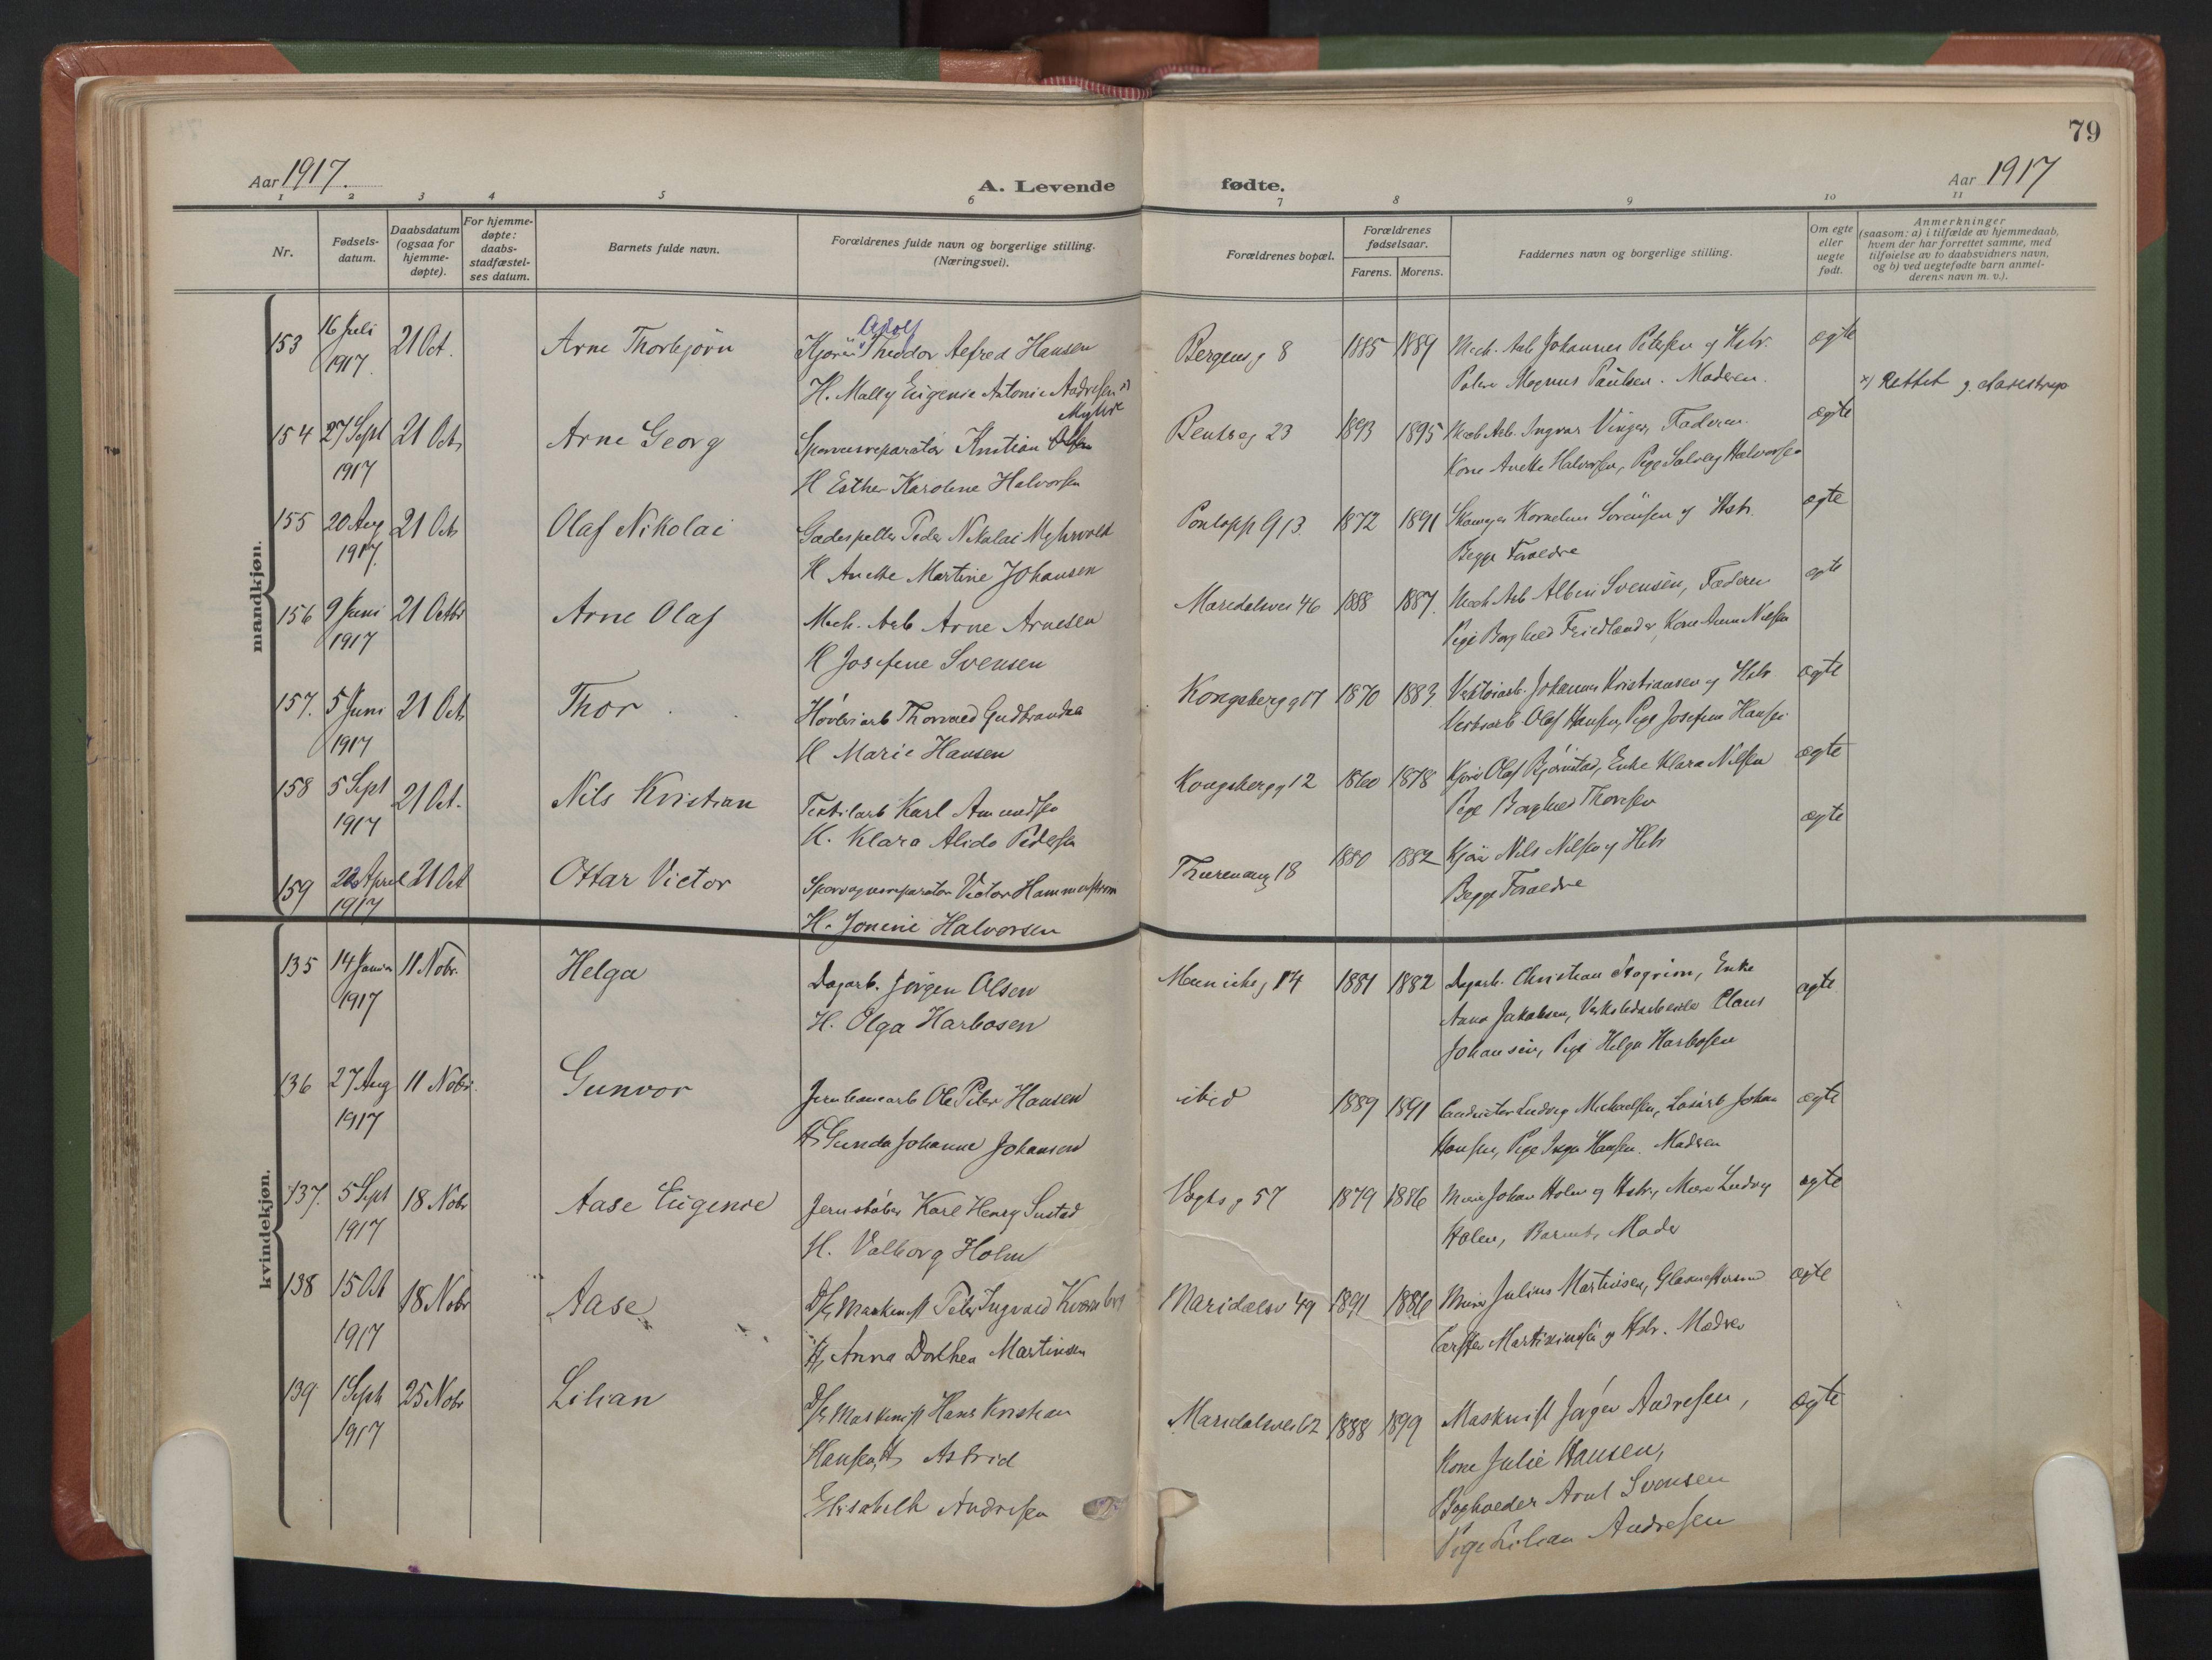 79
Aar 1917.
A. Levende fødte.
Aar 1917
1 2 3 4 5 6 7 8 9 10 11
Nr.
Fødsels-
datum.
Daabsdatum
(ogsaa for
hjemme-
døpte).
For hjemme-
døpte:
daabs-
stadfæstel-
ses datum.
Barnets fulde navn.
Forældrenes fulde navn og borgerlige stilling.
(Næringsvei).
Forældrenes bopæl.
Forældrenes
fødselsaar.
Farens. Morens.
Faddernes navn og borgerlige stilling.
Om egte
eller
uegte
født.
Anmerkninger
(saasom: a) i tilfælde av hjemmedaab,
hvem der har forrettet samme, med
tilføielse av to daabsvidners navn,
og b) ved uegtefødte barn anmel-
derens navn m. v.).
mandkjøn.
153 16 Juli 21 Oct. Arne Thorbjörn Adolf
1917. Theodor Alfred Hansen Bergensg 8 1885 1889 Mech. Arb Johannes Petersen og Hstr. ægte
H. Mally Eugenie Antonie Andresen x) Magnus Paulsen. Moderen. x) Rettet
154 27 Sept 21 Oct Arne Georg Myhre
1917 Kristian Olsen Bentseg 23 1893 1895 Mech Arb. Ingvar Vinger, Faderen. ægte
H Esther Karoline Halvorsen Kone Anette Halvorsen, Pige Solveig Halvorsen
155 20 Aug 21 Oct Olaf Nikolai Peder Nikolai Myhrvold Pontoppg 13 1872 1891 Kornelius Sörensen og Hstr. ægte
1917. H Anette Martine Johansen Begge Forældre
156 9 Juni 21 Octbr Arne Olaf Mech. Arb Arne Arnesen Maridalsvei 46 1888 1887. Mech Arb Albin Svensen, Faderen ægte
1917 H Josefine Svensen Pige Borghild Friedlander, Kone Anna Nilsen
157. 5 Juni 21 Oct Thor Thorvald Gudbrandsen Kongsbergg 17 1870 1883. Johannes Kristiansen og Hstr ægte
1917 H Marie Hansen Verksarb Olaf Hansen, Pige Josefine Hansen
158 5 Sept 21 Oct. Nils Kristian Textilarb Karl Amundsen Kongsbergg 12 1860 1878 Kjörer Olaf Björnstad, Enke Klara Nilsen ægte
1917 H. Klara Alida Pedersen Pige Borghild Thoresen
159 22 April 21 Oct Ottar Victor Victor Hammerström 18 1880 1882 Kjörer Nils Nilsen og Hstr ægte
1917 H. Jonine Halvorsen Begge Forældre
kvindekjøn.
135 14 Januar 11 Nobr. Helga Dagarb. Jörgen Olsen 14 1881 1882 Dagarb. Christian Enke ægte
1917 H. Olga Harbosen Anna Jakobsen, Verkstedarbeider Claus
Johansen, Pige Helga Harbosen
136 27 Aug 11 Nobr. Gunvor Jernbanearb Ole Peter Hansen ibid 1889 1891 Conductør Ludvig Michaelsen, Johan ægte
1917 H. Gunda Johanne Johansen Hansen, Pige Inga Hansen. Modren
137. 5 Sept 18 Nobr Aase Eugenie Jernstöber Karl Henry Sustad Vogtsg 57 1879 1886 Murer Johan Holm og Hstr, Murer Ludvig ægte
1917 H. Valborg Holm Holm, Barnets Moder
138 15 Oct 18 Nobr Aase D/S Maskinist Peter Ingvald Maridalsv 49 1891 1886 Murer Julius Martinsen, ægte
1917 H. Anna Dorthea Martinsen og Hstr. Modren
139 1 Sept 25 Nobr Lilian D/S Maskinist Hans Kristian Maridalsvei 62 1888 1899 Maskinist Jörgen Andresen, ægte
1917 Hansen, H. Astrid Kone Julie Hansen,
Elisabeth Andresen Bogholder Arnt Svensen
Pige Lilian Andresen